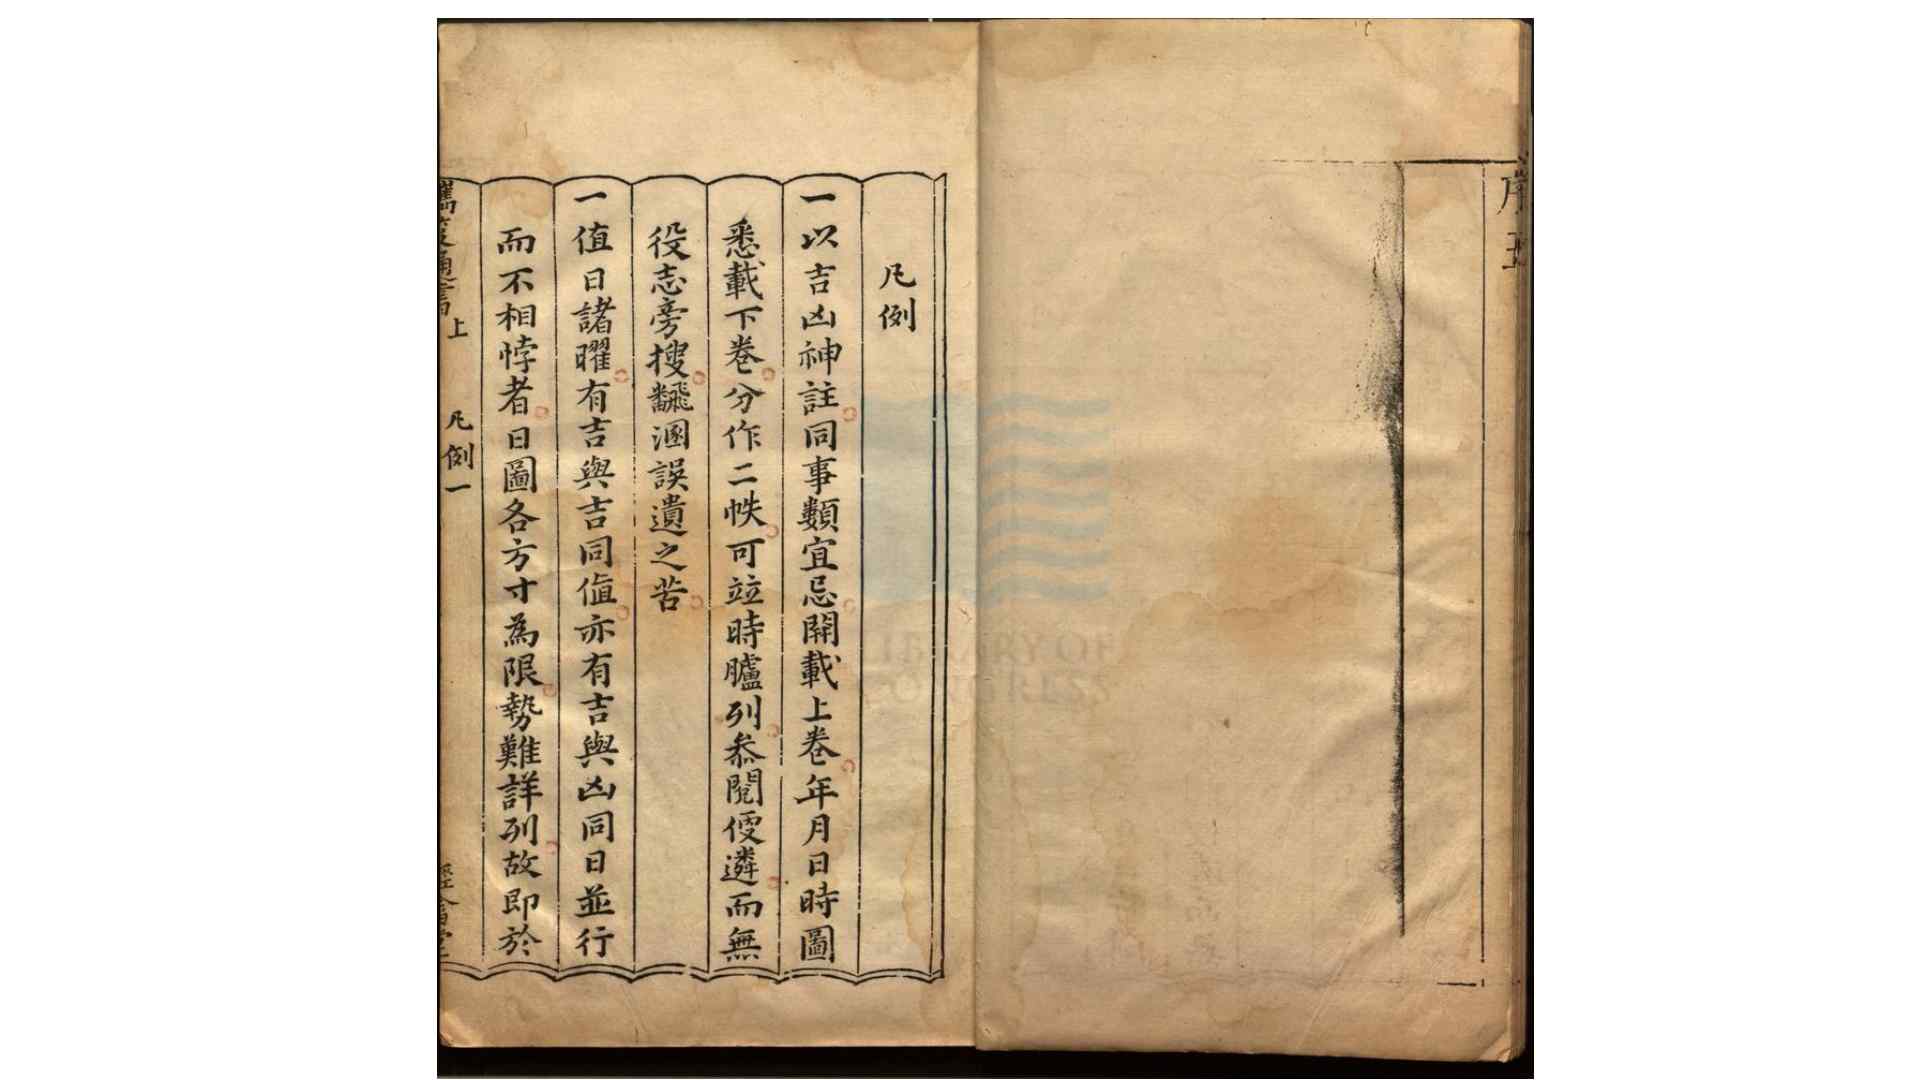 序五
凡例
一以吉凶神註同事類宜忌開載上卷年月日時圖
悉載下卷分作二帙可竝時臚列叅閱便遴而無
役志旁搜飜溷誤遺之苦
一值日諸曜有吉與吉同值亦有吉與凶同日並行
而不相悖者日圖各方寸為限勢難詳列故即於
上 凡例一
LIBRARY OF
CONGRESS